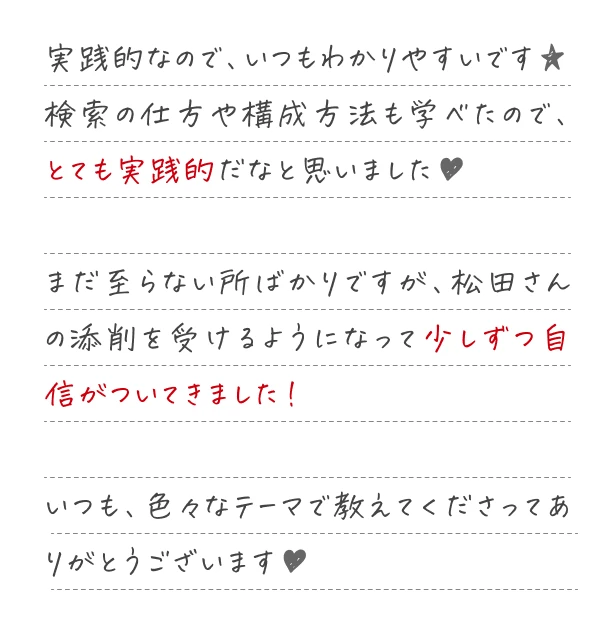 実践的なので、いつもわかりやすいです★
検索の仕方や構成方法も学べたので、
とても実践的だなと思いました♥
まだ至らない所ばかりですが、松田さん
の添削を受けるようになって少しずつ自
信がついてきました！
いつも、色々なテーマで教えてくださってあ
りがとうございます♥